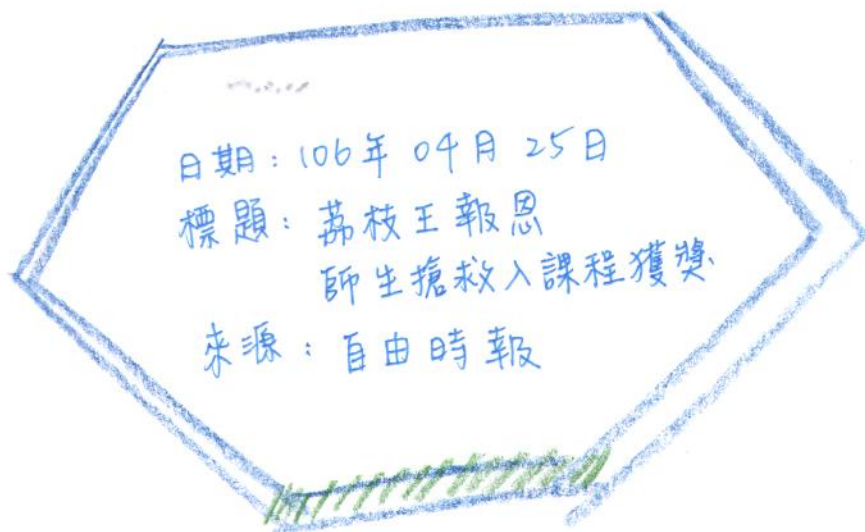 日期：106年04月25日
標題：荔枝王報恩
師生搶救入課程獲獎
來源：自由時報